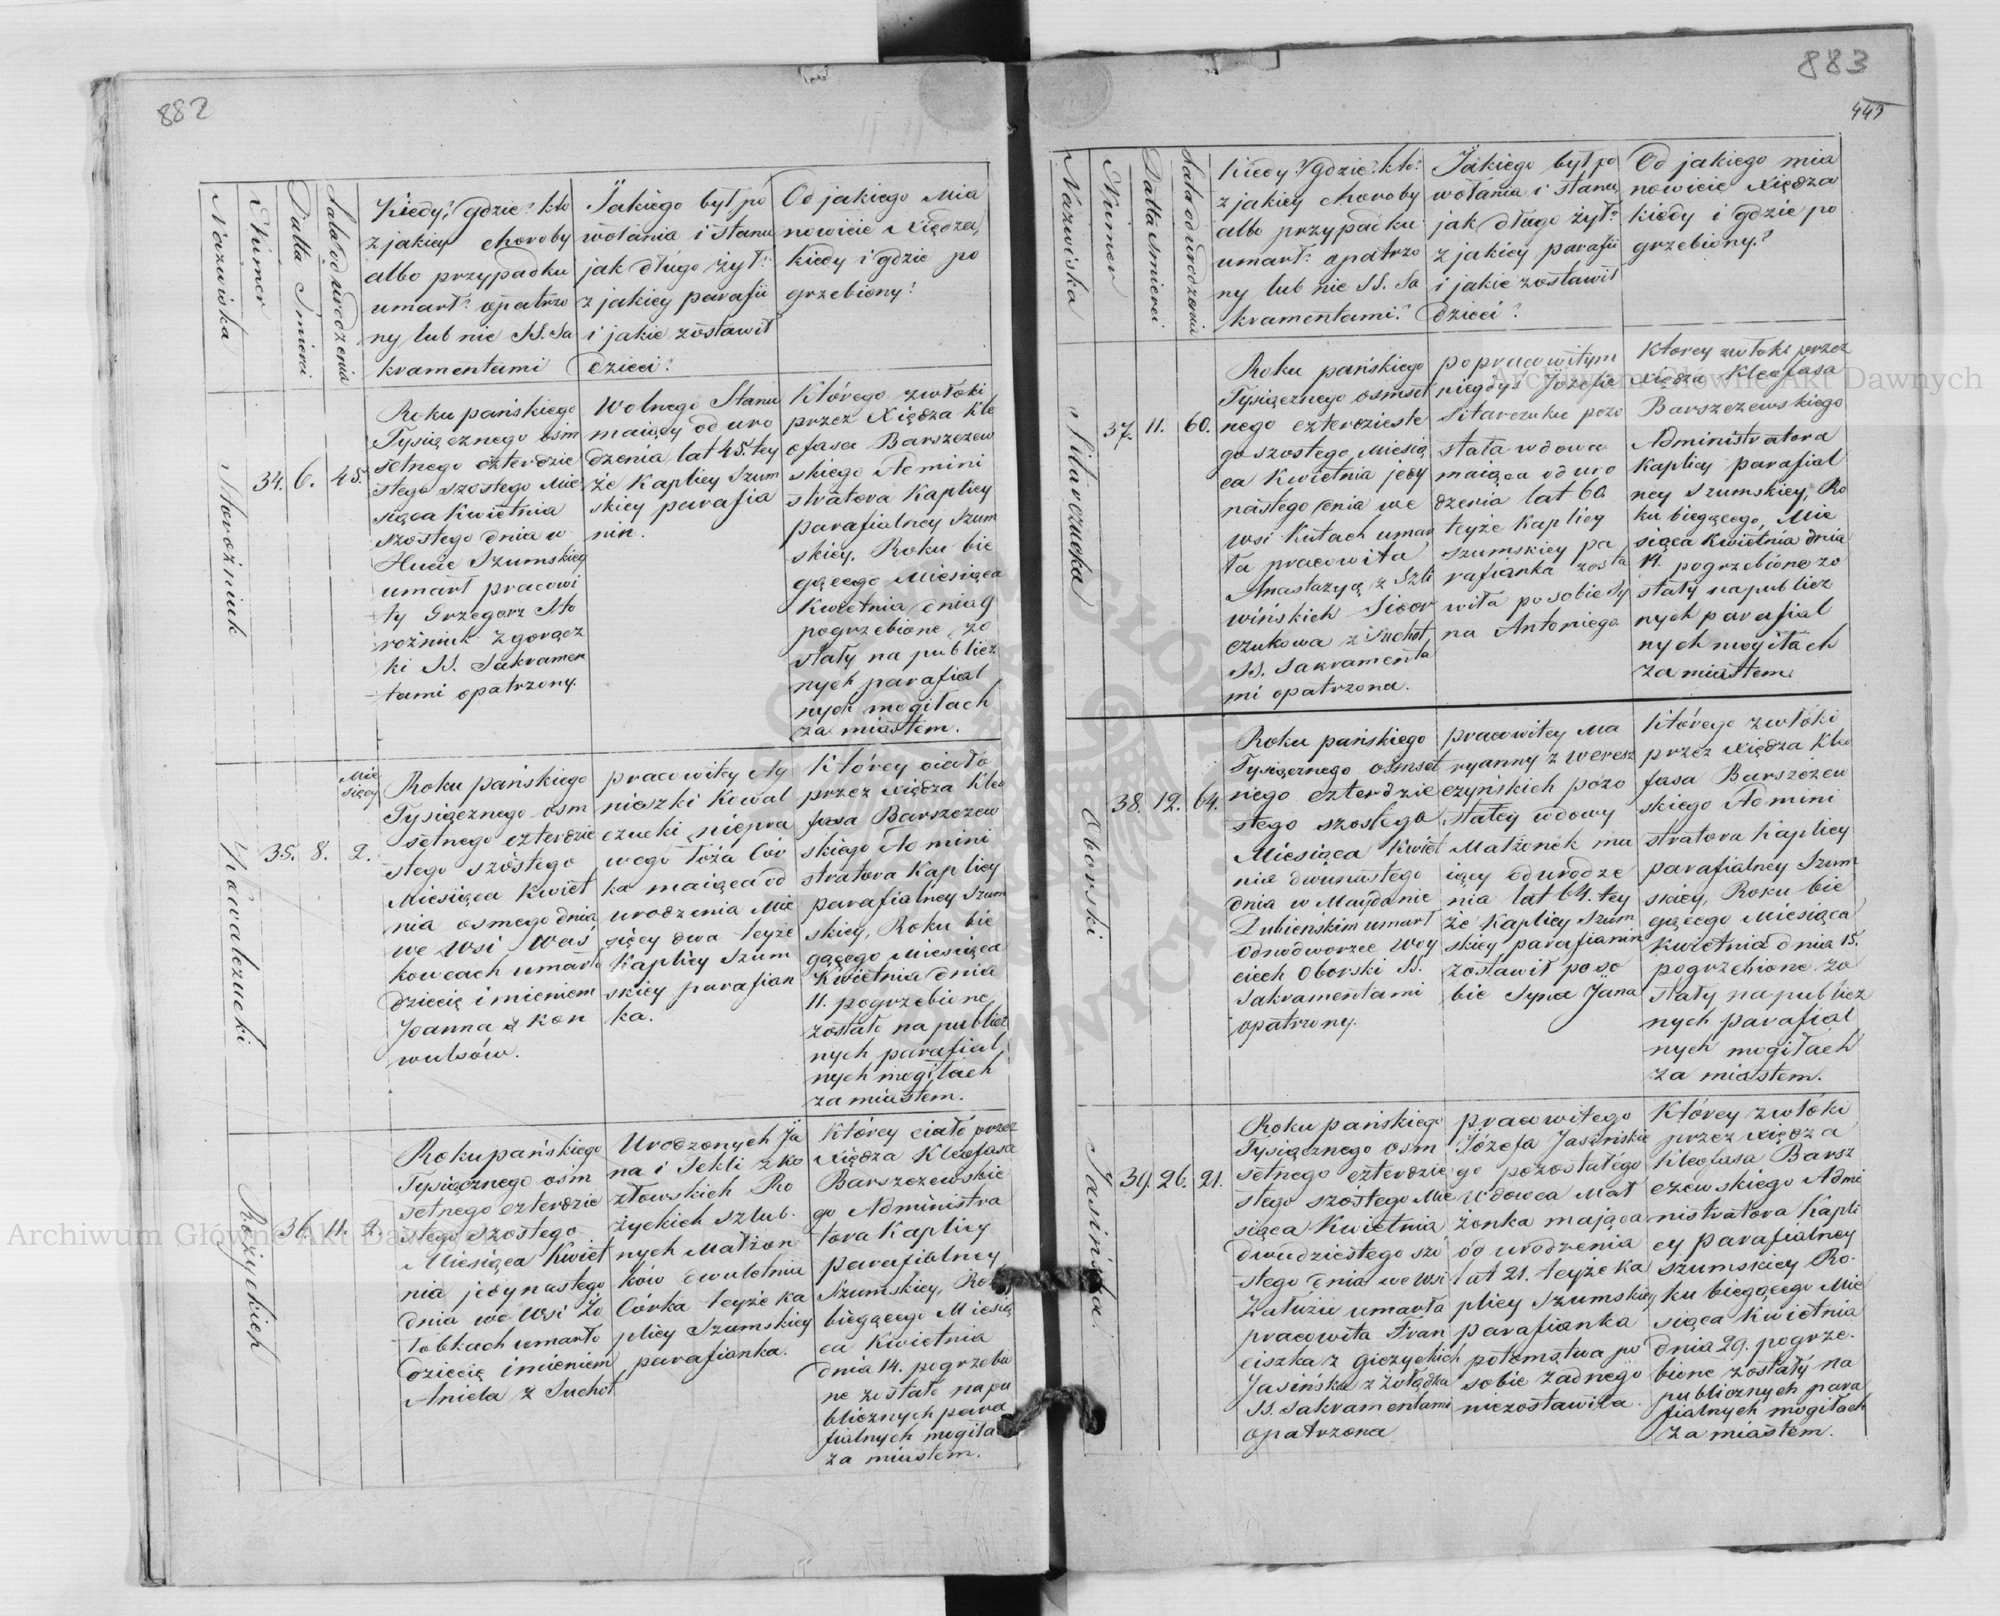 882
Nazwiska
Numer
Datta Smierci
Lata od urodzenia
Kiedy? gdzie? kto
z jakiey choroby
albo przypadku
umarł? opatrzo
ny lub nie SS. Sa
kramentami
Jakiego był po
wołania i stanu
jak długo żył?
z jakiey parafii
i jakie zostawił
dzieci?
Od jakiego Mia
nowicie Xiędza,
kiedy i gdzie po
grzebiony?
Storożniuk
34.
6.
45.
Roku pańskiego
Tysiącznego ośm
setnego czterdzie
stego szostego Mie
siąca Kwietnia
szostego dnia w
Hucie Szumskiey
umarł pracowi
ty Grzegorz Sto
rożniuk z gorącz
ki SS. Sakramen
tami opatrzony.
Wolnego Stanu
maiący od uro
dzenia lat 45. tey
że Kaplicy Szum
skiey parafia
nin.
Którego zwłoki
przez Xiędza Kle
ofasa Barszczew
skiego Admini
stratora Kaplicy
parafialney Szum
skiey, Roku bie
gącego Miesiąca
Kwietnia dnia 9
pogrzebione zo
stały na publicz
nych parafial
nych mogiłach
za miastem.
Kowalczucki
35.
8.
Mie
sięcy
2.
Roku pańskiego
Tysiącznego ośm
setnego czterdzie
stego szóstego
Miesiąca Kwiet
nia osmego dnia
we Wsi Waś
kowcach umarło
dziecię imieniem
Joanna z kon
wulsów.
pracowitey Ag
nieszki Kowal
czucki niepra
wego łoża Cor
ka maiąca od
urodzenia Mie
sięcy dwa teyże
Kaplicy Szum
skiey parafian
ka.
Którey ciało
przez Xiędza Kleo
fasa Barszczew
skiego Admini
stratora Kaplicy
parafialney Szum
skiey, Roku bie
gącego Miesiąca
Kwietnia dnia
11. pogrzebione
zostało na publicz
nych parafial
nych mogiłach
za miastem.
Rożyckich
36.
11.
2.
Roku pańskiego
Tysiącznego ośm
setnego czterdzie
stego szostego
Miesiąca Kwiet
nia jedynastego
dnia we Wsi Żo
łobkach umarło
dziecię imieniem
Aniela z Suchot
Urodzonych Ja
na i Tekli z Ko
złowskich Ro
życkich szlub.
nych Małżon
ków dwuletnia
Córka teyże Ka
plicy Szumskiey
parafianka.
Którey ciało przez
Xiędza Kleofasa
Barszczewskie
go Administra
tora Kaplicy
parafialney
Szumskiey, Roku
biegącego Miesią
ca Kwietnia
dnia 14. pogrzebio
ne zostało na pu
blicznych para
fialnych mogiłach
za miastem.
883
443
Nazwiska
Numer
Datta Smierci
Lata od urodzenia
Kiedy? gdzie? kto?
z jakiey choroby
albo przypadku
umarł? opatrzo
ny lub nie SS. Sa
kramentami?
Jakiego był po
wołania i stanu,
jak długo żył?
z jakiey parafii
i jakie zostawił
dzieci?
Od jakiego mia
nowicie Xiędza
kiedy i gdzie po
grzebiony?
Sitarczucka
37.
11.
60.
Roku pańskiego
Tysiącznego osmset
nego czterdzieste
go szostego Miesią
ca Kwietnia jedy
nastego dnia we
wsi Kutach umar
ła pracowita
Anastazya z Szli
wińskich
czukowa z Suchot,
SS. Sakramenta
mi opatrzona.
po pracowitym
niegdyś Józefie
Sitarczuku pozo
stała wdowa
maiąca od uro
dzenia lat 60.
teyże Kaplicy
Szumskiey pa
rafianka zosta
wiła po sobie Sy
na Antoniego
Ktorey zwłoki przez
Xiędza Kleofasa
Barszczewskiego
Administratora
Kaplicy parafial
ney Szumskiey, Ro
ku biegącego, Mie
siąca Kwietnia dnia
14. pogrzebione zo
stały na publicz
nych parafial
nych mogiłach
za miastem.
Oborski
38.
12.
64.
Roku pańskiego
Tysiącznego osmset
nego czterdzie
stego szostego
Miesiąca Kwiet
nia dwunastego
dnia w Maydanie
Dubieńskim umarł
Odnodworzec Woy
ciech Oborski SS.
Sakramentami
opatrzony.
pracowitey Ma
ryanny z Weresz
czyńskich pozo
stałey wdowy
Małżonek ma
iący od urodze
nia lat 64. tey
że Kaplicy Szum
skiey parafianin
zostawił po so
bie Syna Jana
Którego zwłoki
przez Xiędza Kleo
fasa Barszczew
skiego Admini
stratora Kaplicy
parafialney Szum
skiey, Roku bie
gącego Miesiąca
Kwietnia dnia 15.
pogrzebione zo
stały na publicz
nych parafial
nych mogiłach
za miastem.
Jasińska
39.
26.
21.
Roku pańskiego
Tysiącznego osm
setnego czterdzie
stego szostego Mie
siąca Kwietnia
dwudziestego szó
stego dnia we Wsi
Załużu umarła
pracowita Fran
ciszka z Giczyckich
Jasińska z żołądka
SS. Sakramentami
opatrzona
pracowitego
Józefa Jasińskie
go pozostałego
Wdowca Mał
żonka mająca
od urodzenia
lat 21. teyże Ka
plicy Szumskiey
parafianka
potomstwa po
sobie żadnego
niezostawiła.
Którey zwłoki
przez Xiędza
Kleofasa Barsz
czewskiego Admi
nistratora Kapli
cy parafialney
Szumskiey Ro.
ku biegącego Mie
siąca Kwietnia
dnia 29. pogrze.
bione zostały na
publicznych para
fialnych mogiłach
za miastem.
Archiwum Główne Akt Dawnych
Archiwum Główne Akt Dawnych